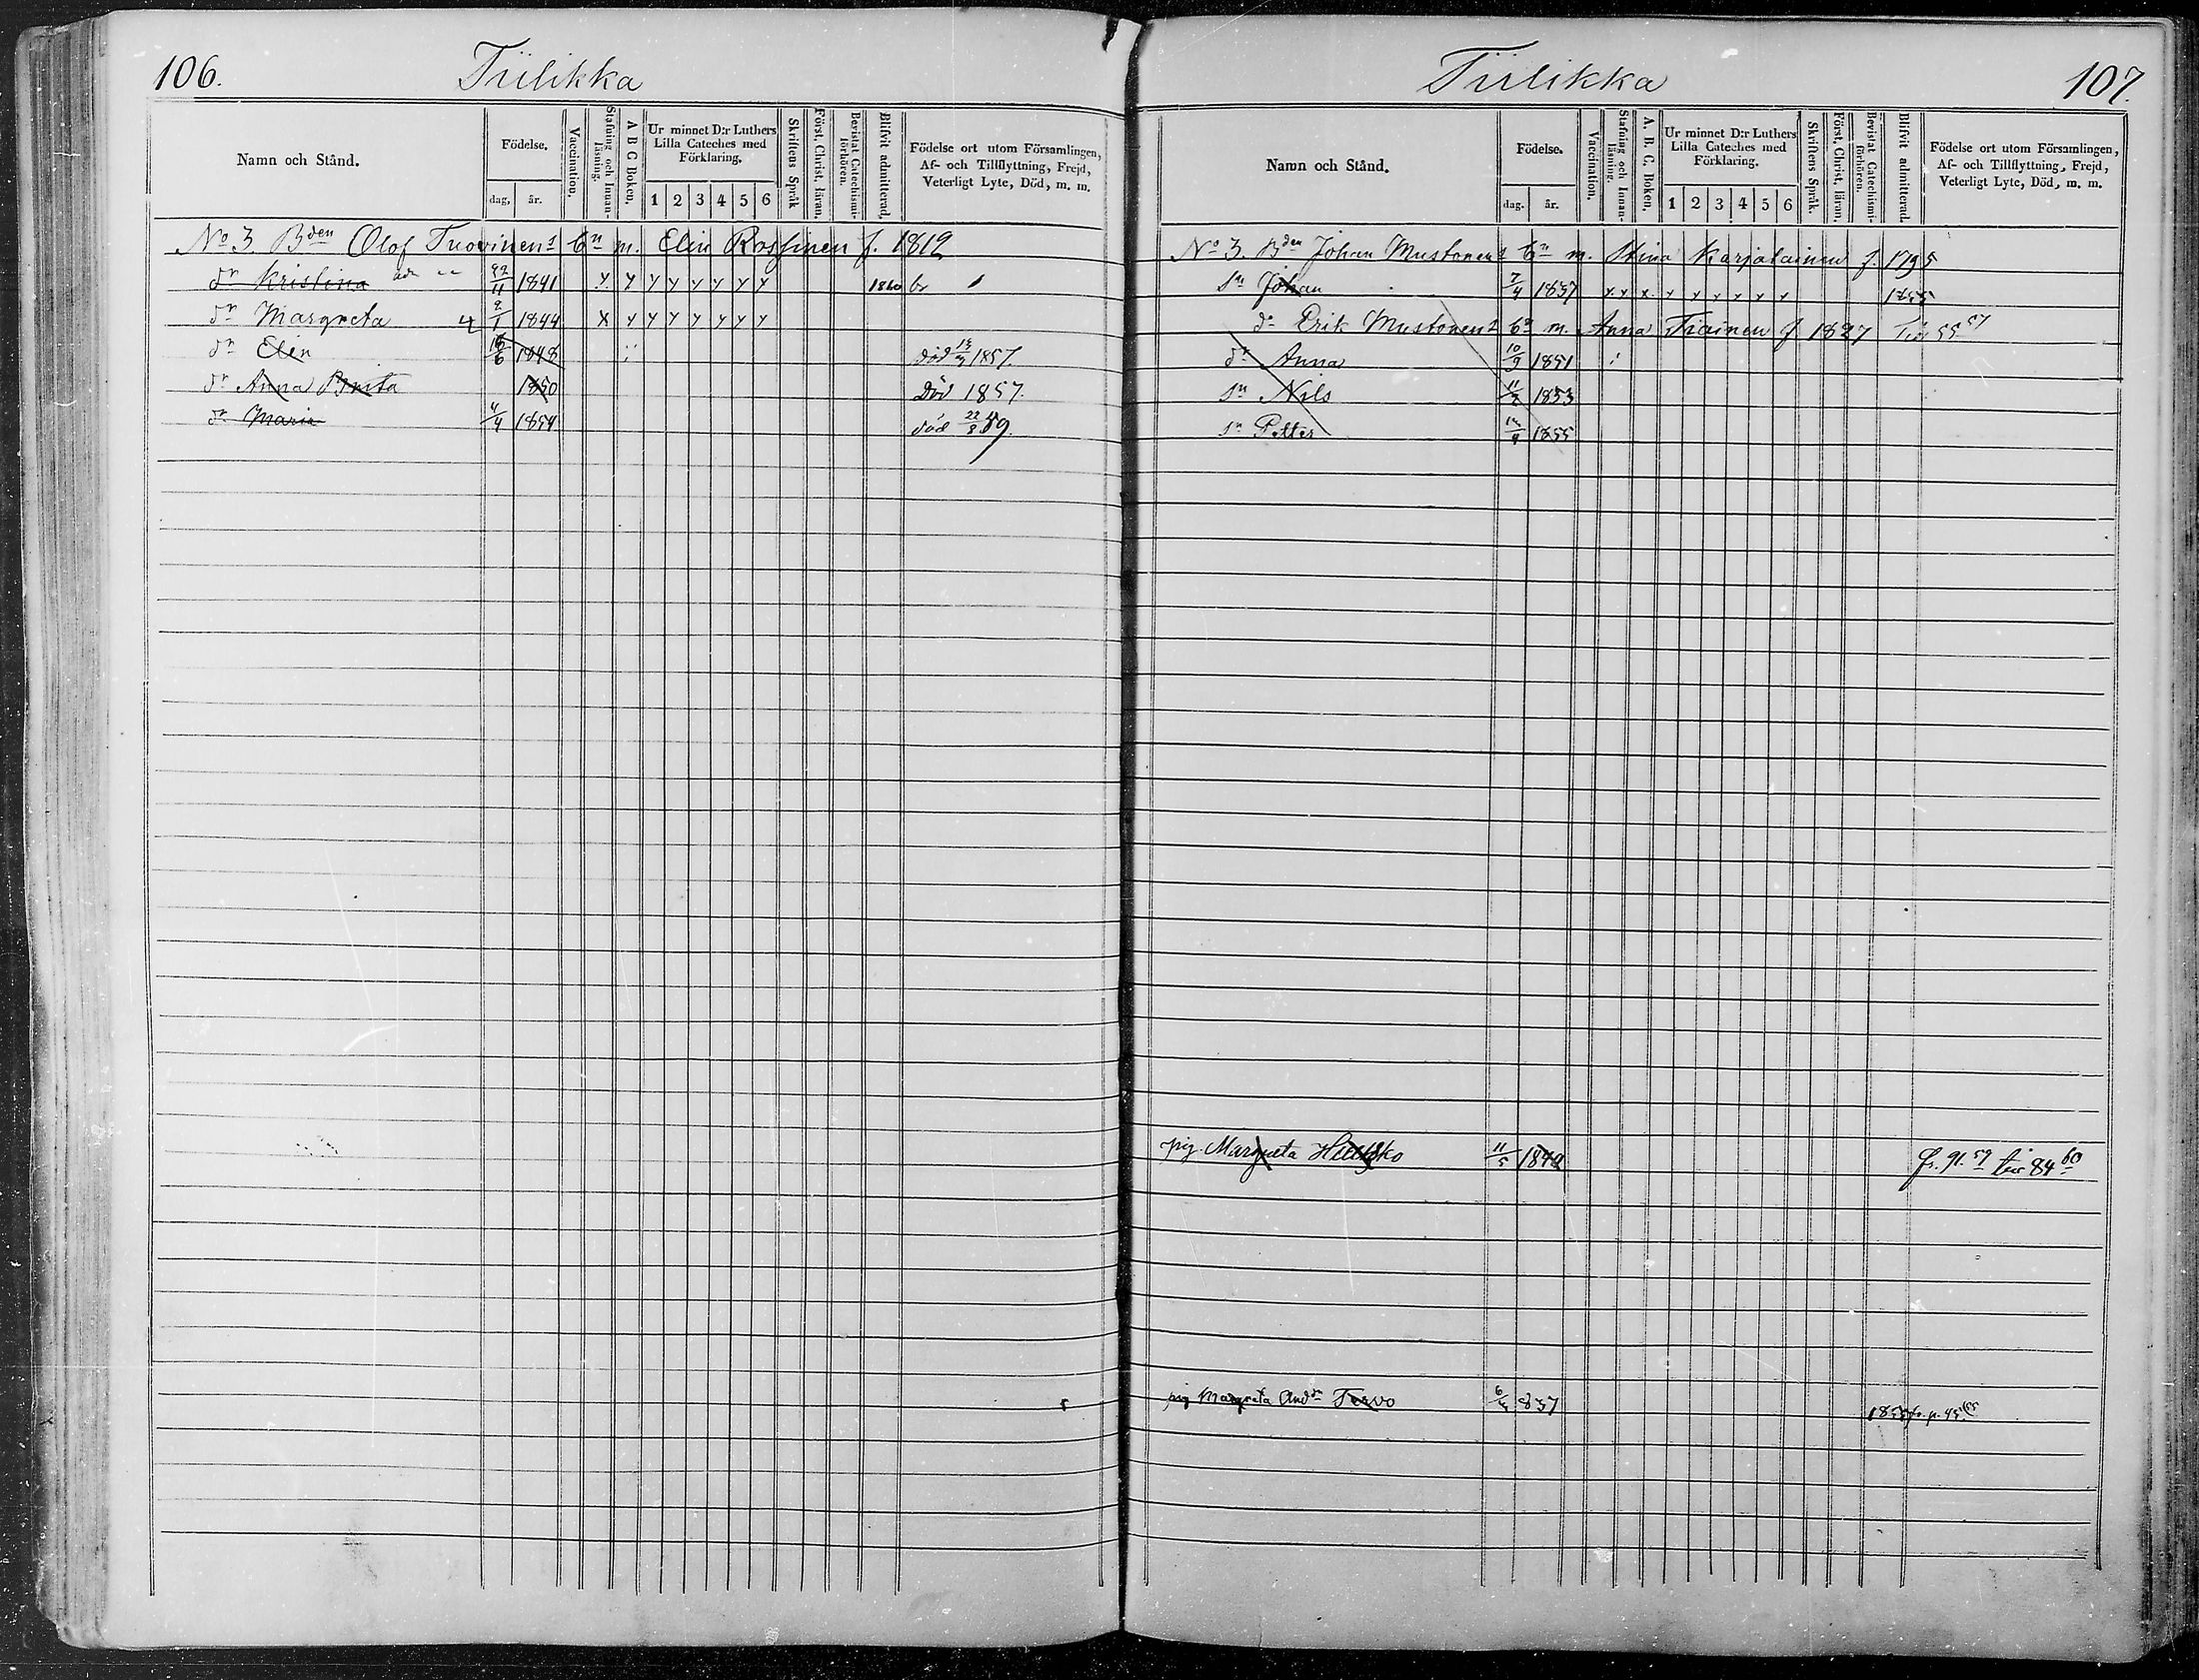 106. Tiilikka
Namn och Stånd. Födelse. dag. år. Vaccination. Stafning och Innan-läsning. A B C Boken. Ur minnet D:r Luthers Lilla Cateches med Förklaring. 1 2 3 4 5 6 Skriftens Språk Först. Christ. läran. Bevistat Catechismi-förhören. Blifvit admitterad. Födelse ort utom Församlingen, Af- och Tillflyttning, Frejd, Veterligt Lyte, Död, m. m.
No 3. Bden Olof Tuovinens 6n m. Elin Rossinen f. 1812
dr Kristina 22/11 1841 x y y y y y y y 1860
dr Margreta 2/1 1844 x y y y y y y y
dr Elin 1848 död 1857.
dr Anna Brita 1850 Död 1857.
dr Maria 4/4 1854 död 22/8 59.
Tiilikka 107.
Namn och Stånd. Födelse. dag. år. Vaccination. Stafning och Innan-läsning. A. B. C. Boken. Ur minnet D:r Luthers Lilla Cateches med Förklaring. 1 2 3 4 5 6 Skriftens Språk. Först. Christ. läran. Bevistat Catechismi-förhören. Blifvit admitterad. Födelse ort utom Församlingen, Af- och Tillflyttning, Frejd, Veterligt Lyte, Död, m. m.
No 3. Bden Johan Mustonens 6n m. Stina Karjalainen f. 1795
sn Johan 7/4 1837 1855
dr Erik Mustonens 6n m. Anna Tiainen f 1827 55 57
dr Anna 10/9 1851
sn Nils 11/2 1853
sn Petter 1855
pig. Margreta 11/5 184 fr. 91. 59 84 60
pig Margreta Andr Tarvo 837 fr. p. 45